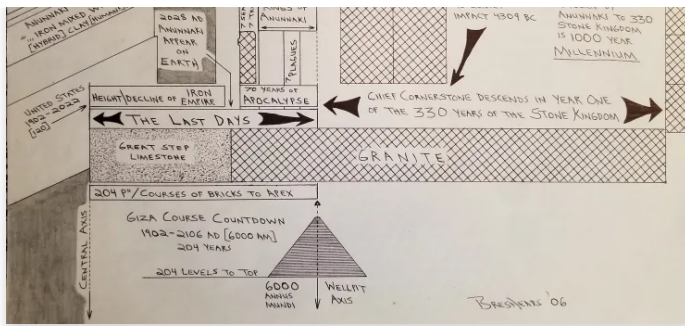 ANUNNAKI
IRON MIXED
[HYBRID] CLAY
2028 AD
ANUNNAKI
APPEAR
ON
EARTH
ANNUNAKI
PLAGUES
IMPACT 4309 BC
ANUNNAKI TO 330
STONE KINGDOM
IS 1000 YEAR
MILLENNIUM
UNITED STATES
1902-2022
[120]
HEIGHT/DECLINE OF IRON
EMPIRE
70 YEARS OF
APOCALYPSE
CHIEF CORNERSTONE DESCENDS IN YEAR ONE
OF THE 330 YEARS OF THE STONE KINGDOM
THE LAST DAYS
GREAT STEP
LIMESTONE
GRANITE
204 P"/COURSES OF BRICKS TO APEX
CENTRAL AXIS
GIZA COURSE COUNTDOWN
1902-2106 AD [6000 AM]
204 YEARS
204 LEVELS TO TOP
6000
ANNUS
MUNDI
WELLPIT
AXIS
BRESHEARS '06